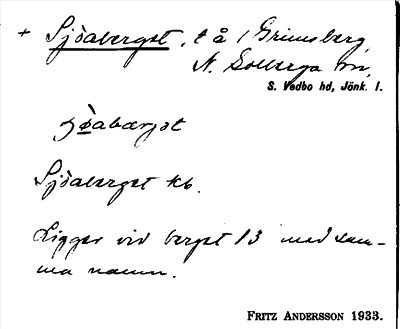 + Sjöaberget, t å 1 Grimsberg,
N. Solberga sn,
S. Vedbo hd, Jönk. l.
Sjöaberget kb.
Ligger vid berget 13 med sam-
ma namn.
FRITZ ANDERSSON 1933.